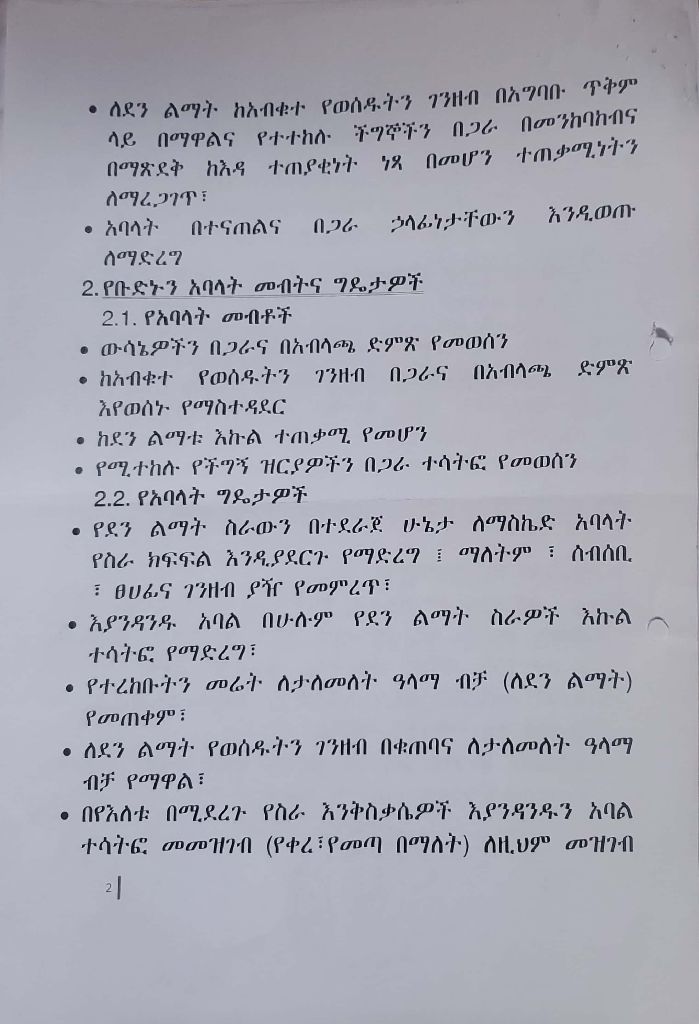 • ለደን ልማት ከአብቁተ የወሰዱትን ገንዘብ በአግባቡ ጥቅም
ላይ በማዋልና የተተከሉ ችግኞችን በጋራ በመንከባከብና
በማጽደቅ ከእዳ ተጠያቂነት ነጻ በመሆን ተጠቃሚነትን
ለማረጋገጥ፣
• አባላት በተናጠልና በጋራ ኃላፊነታቸውን እንዲወጡ
ለማድረግ
2. የቡድኑን አባላት መብትና ግዴታዎች
2.1. የአባላት መብቶች
• ውሳኔዎችን በጋራና በአብላጫ ድምጽ የመወሰን
• ከአብቁተ የወሰዱትን ገንዘብ በጋራና በአብላጫ ድምጽ
እየወሰኑ የማስተዳደር
• ከደን ልማቱ እኩል ተጠቃሚ የመሆን
• የሚተከሉ የችግኝ ዝርያዎችን በጋራ ተሳትፎ የመወሰን
2.2. የአባላት ግዴታዎች
• የደን ልማት ስራውን በተደራጀ ሁኔታ ለማስኬድ አባላት
የስራ ክፍፍል እንዲያደርጉ የማድረግ ፤ ማለትም ፣ ሰብሰቢ
፣ ፀሀፊና ገንዘብ ያዥ የመምረጥ፣
• እያንዳንዱ አባል በሁሉም የደን ልማት ስራዎች እኩል
ተሳትፎ የማድረግ፣
• የተረከቡትን መሬት ለታለመለት ዓላማ ብቻ (ለደን ልማት)
የመጠቀም፣
• ለደን ልማት የወሰዱትን ገንዘብ በቁጠባና ለታለመለት ዓላማ
ብቻ የማዋል፣
• በየእለቱ በሚደረጉ የስራ እንቅስቃሴዎች እያንዳንዱን አባል
ተሳትፎ መመዝገብ (የቀረ፣የመጣ በማለት) ለዚህም መዝገብ
2